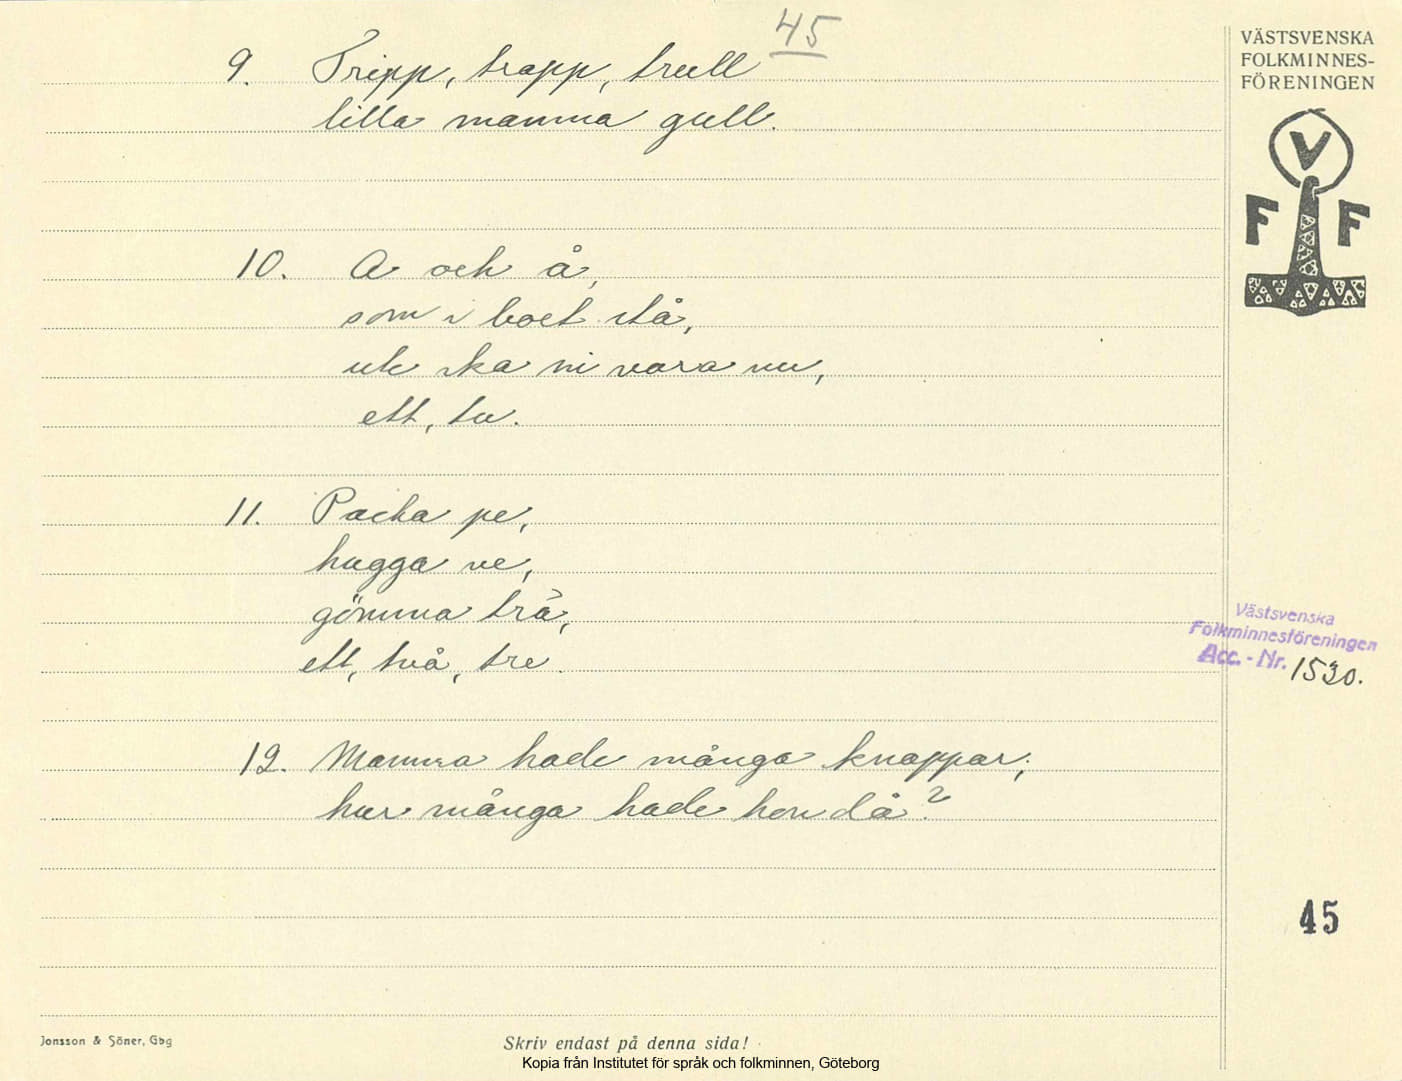 45
9. Tripp, trapp, trull
lilla mamma gull.
10. A och å,
som i boet stå,
ute ska ni vara nu,
ett, tu.
11. Packa pe,
hugga ve,
gömma trä,
ett, två, tre.
12. Mamma hade många knappar;
hur många hade hon då?
VÄSTSVENSKA
FOLKMINNES-
FÖRENINGEN
V
F F
Västsvenska
Folkminnesföreningen
Acc.-Nr. 1530.
45
Jonsson & Söner, Gbg
Skriv endast på denna sida!
Kopia från Institutet för språk och folkminnen, Göteborg